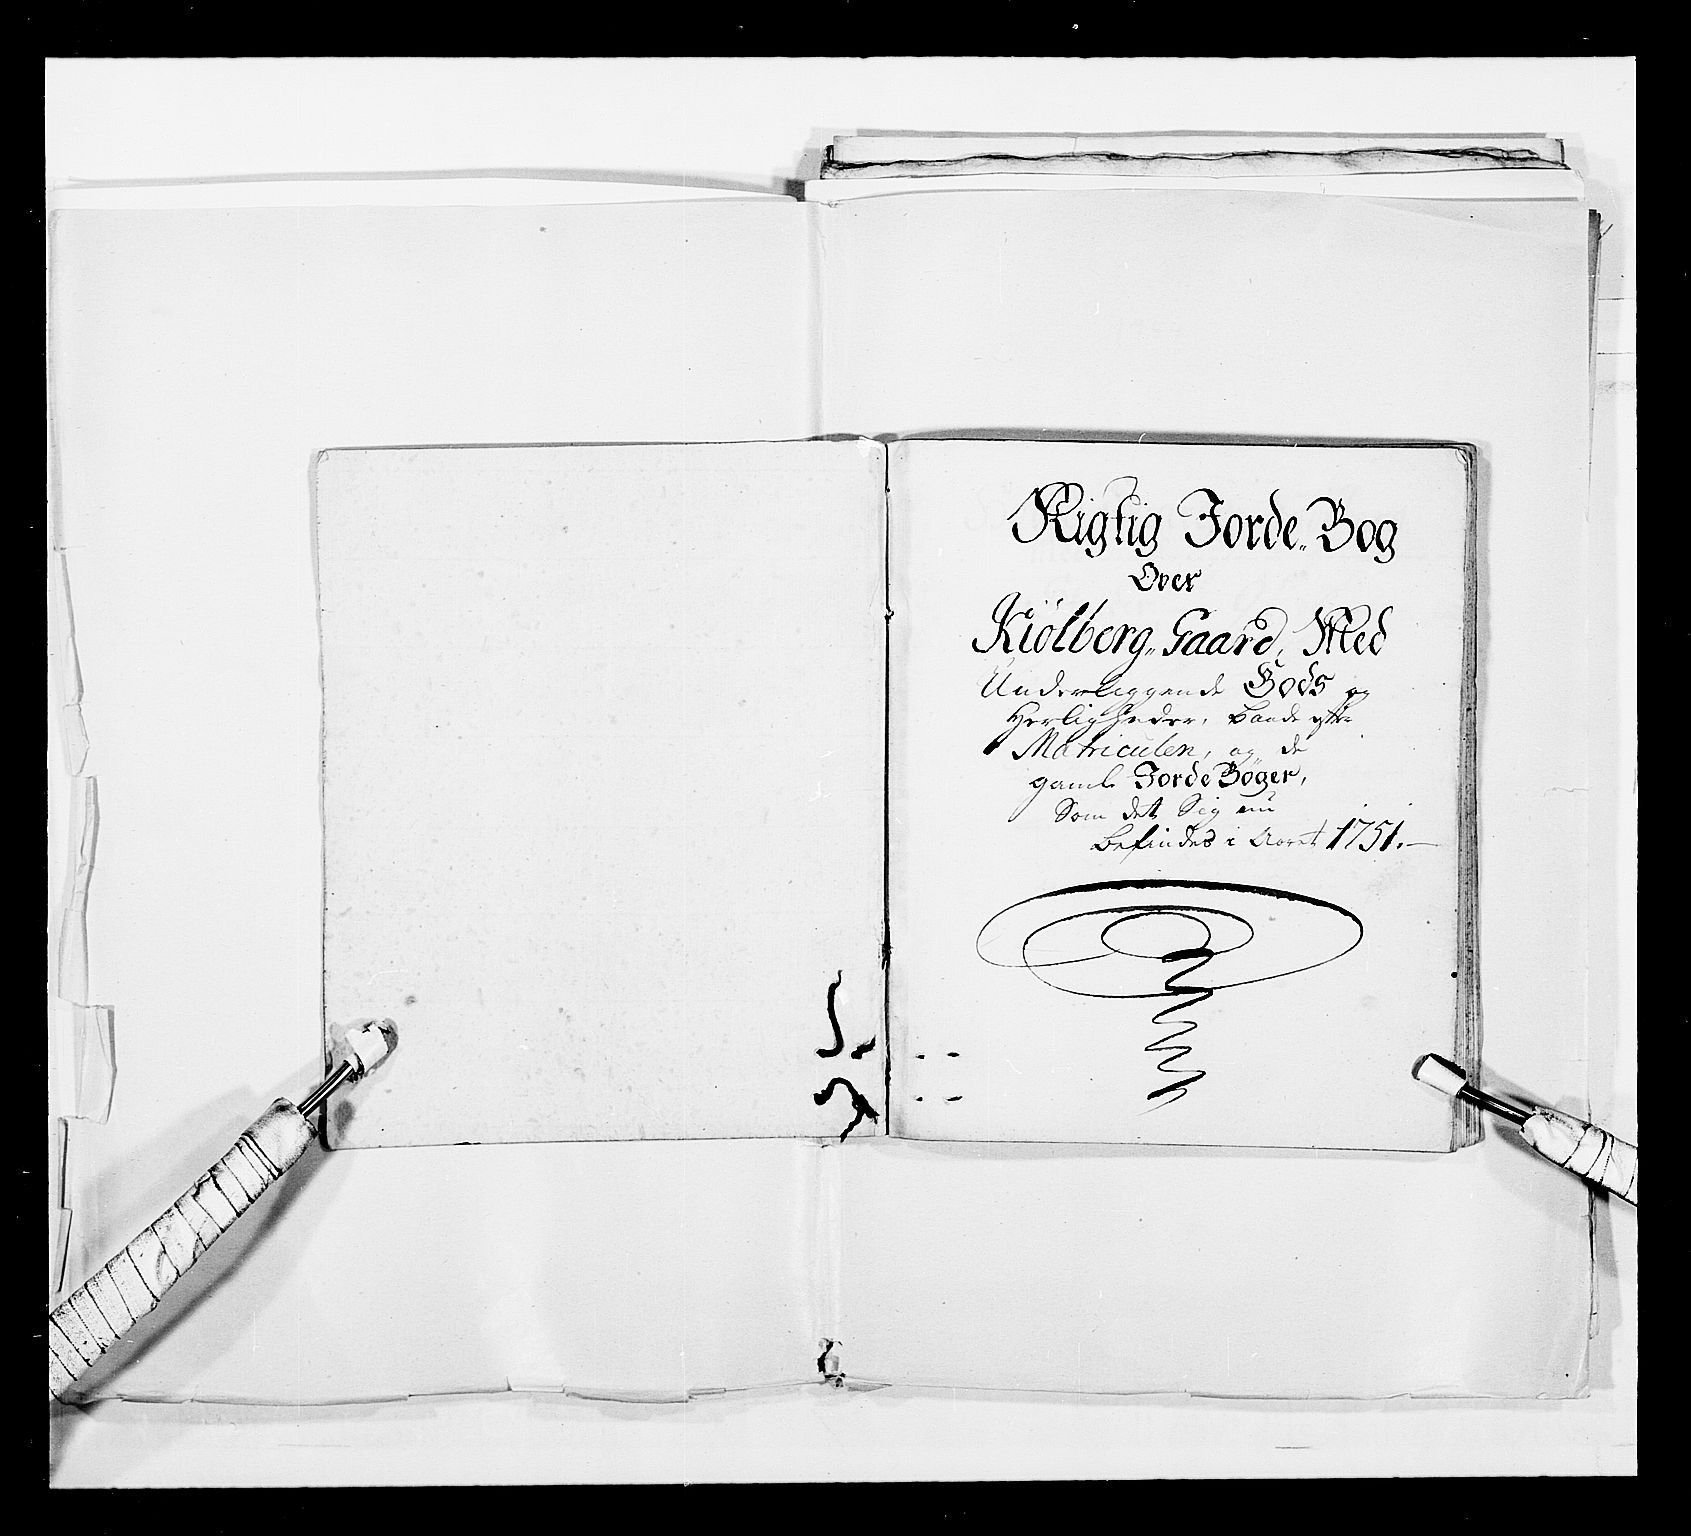 Rigtig Jorde„Bog
Over
Kiölberg„Gaard, Med
Underliggende Gods og
Herligheder, baade efter
Matriculen, og de
gamle Jorde Böger,
Som det Sig nu
befindes i Aaret 1751.